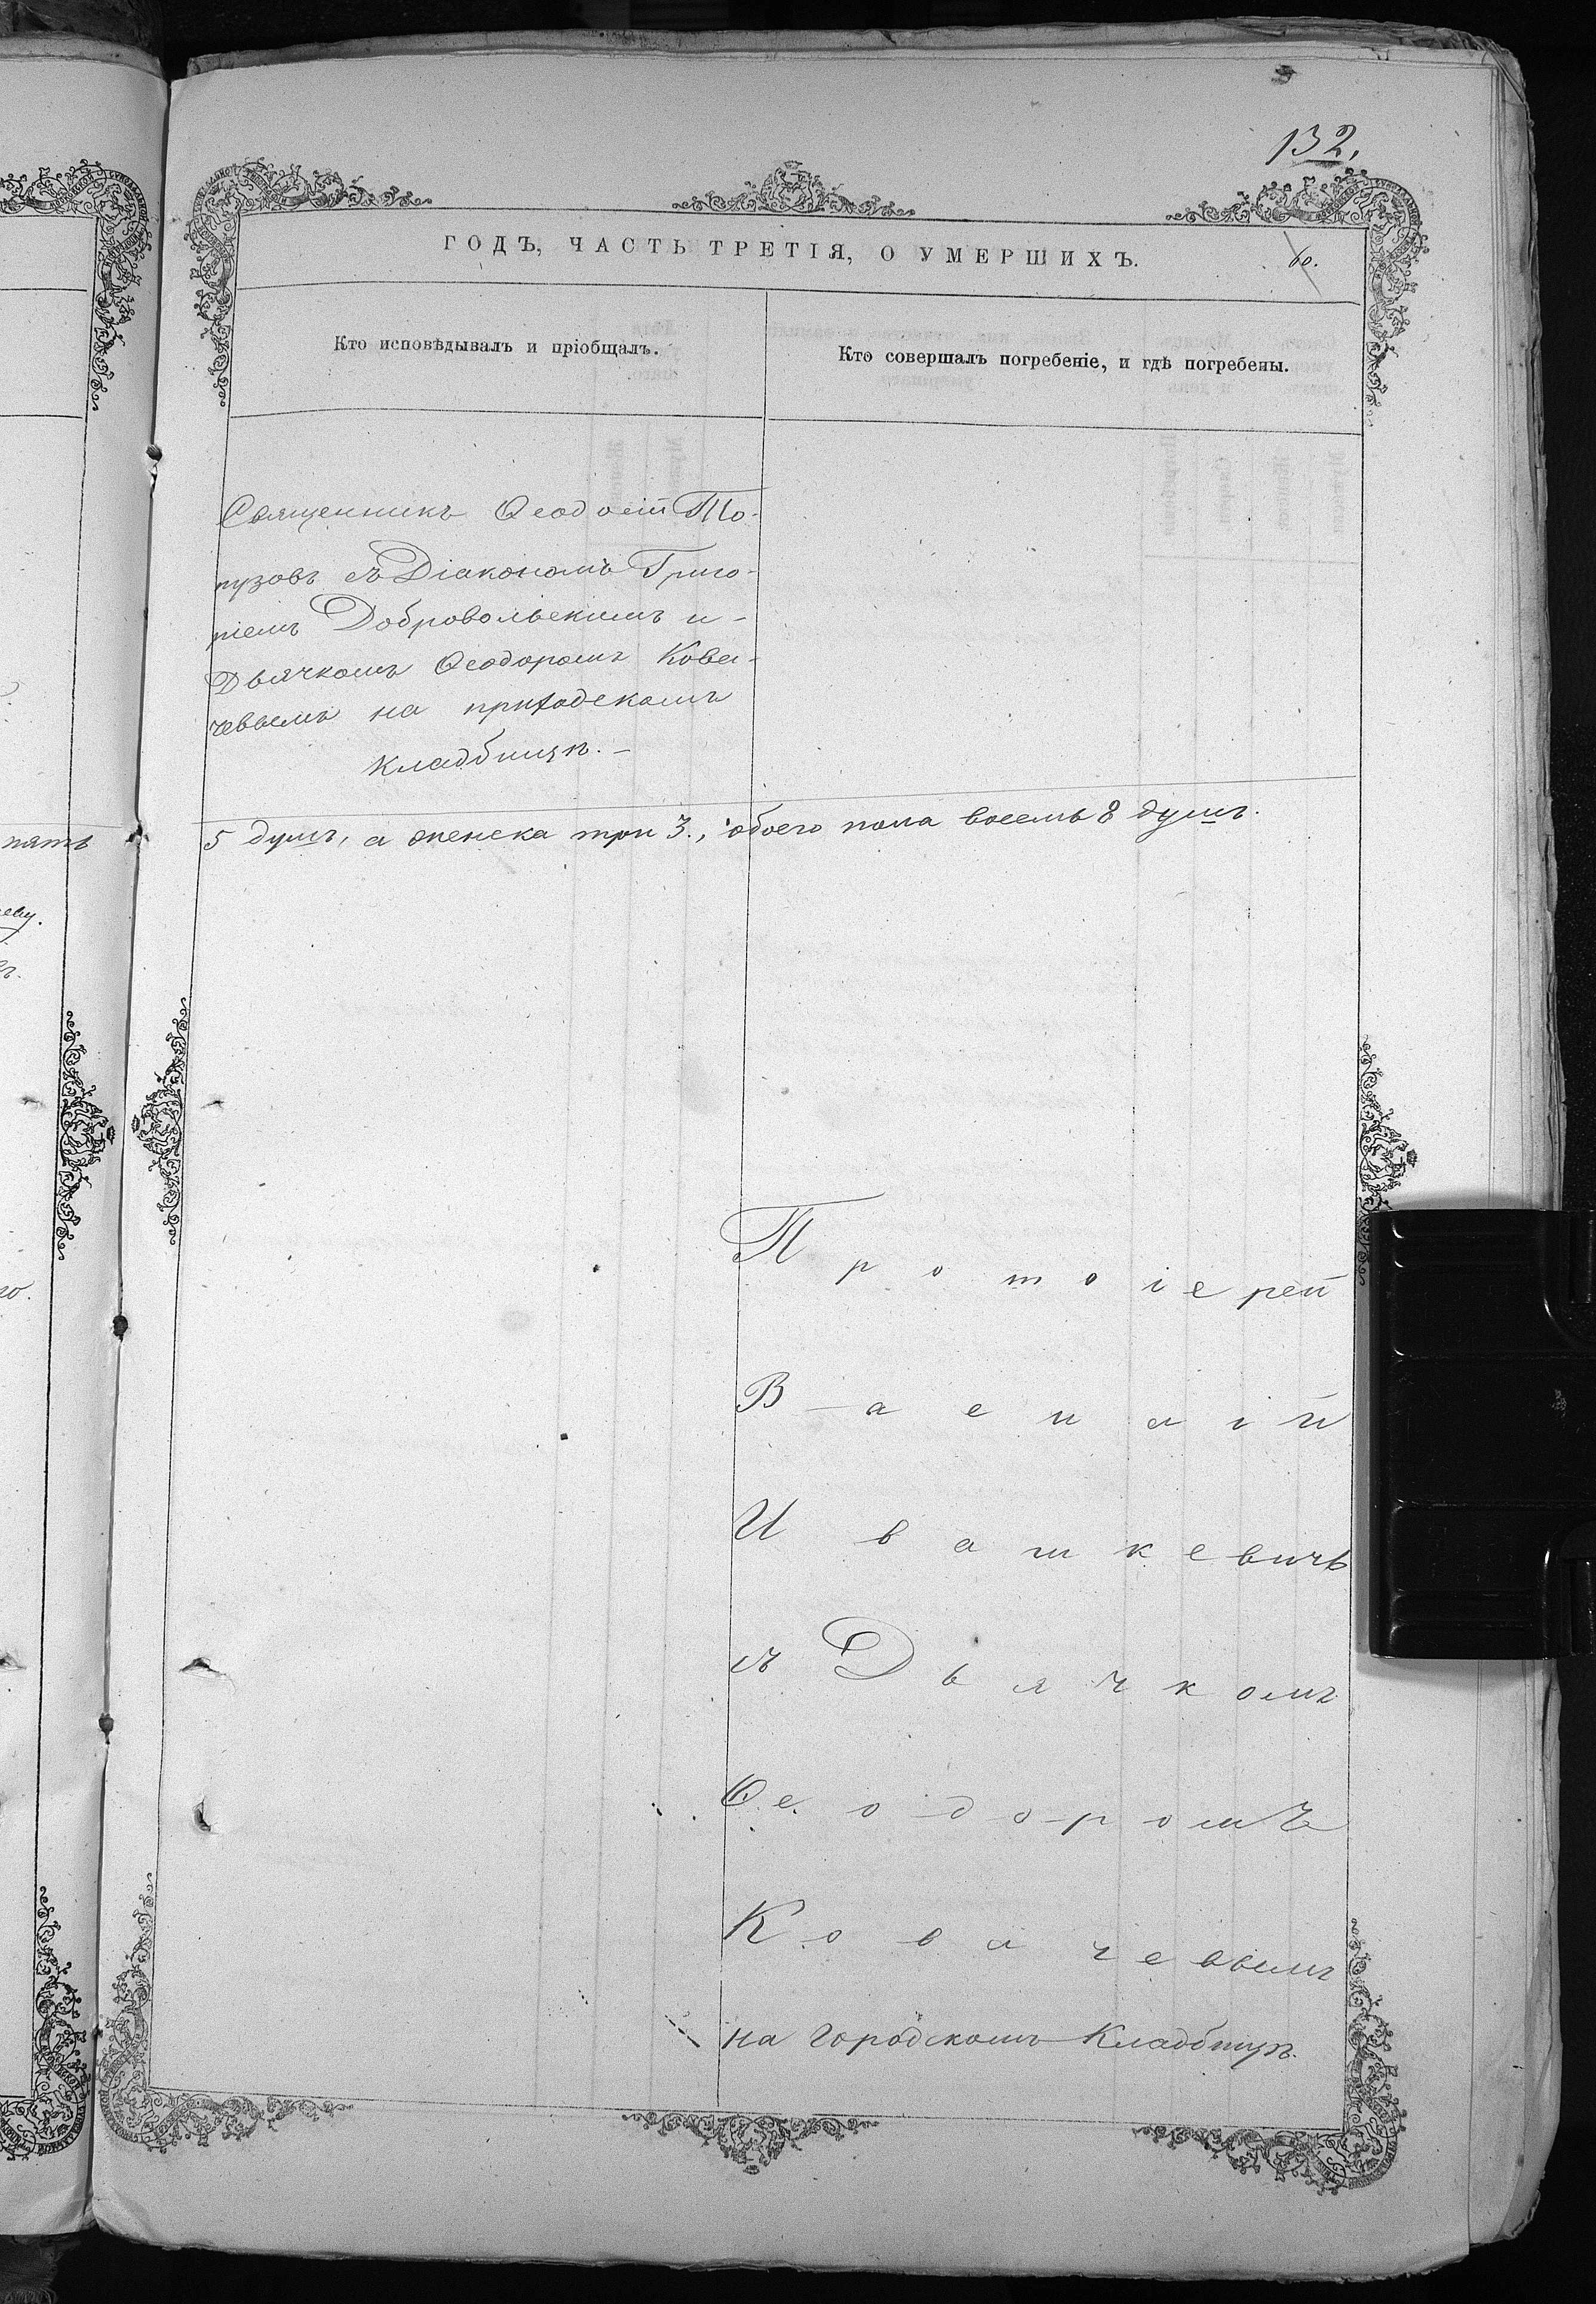 132.
ГОДЪ, ЧАСТЬ ТРЕТІЯ, О УМЕРШИХЪ.
60.
Кто исповѣдывалъ и пріобщалъ.
Кто совершалъ погребеніе, и гдѣ погребены.
Священникъ Ѳеодосій То-
пузовъ съ Діакономъ Григо-
ріемъ Добровольскимъ и -
Дьячкомъ Ѳеодоромъ Кова-
чевымъ на приходскомъ
кладбищѣ. -
пять
5 душъ, а женска три 3., обоего пола восемь 8 душъ.
Протоіерей
Василій
Ивашкевичъ
съ Дьячкомъ
Ѳеодоромъ
Ковачевымъ
на городскомъ Кладбищѣ.